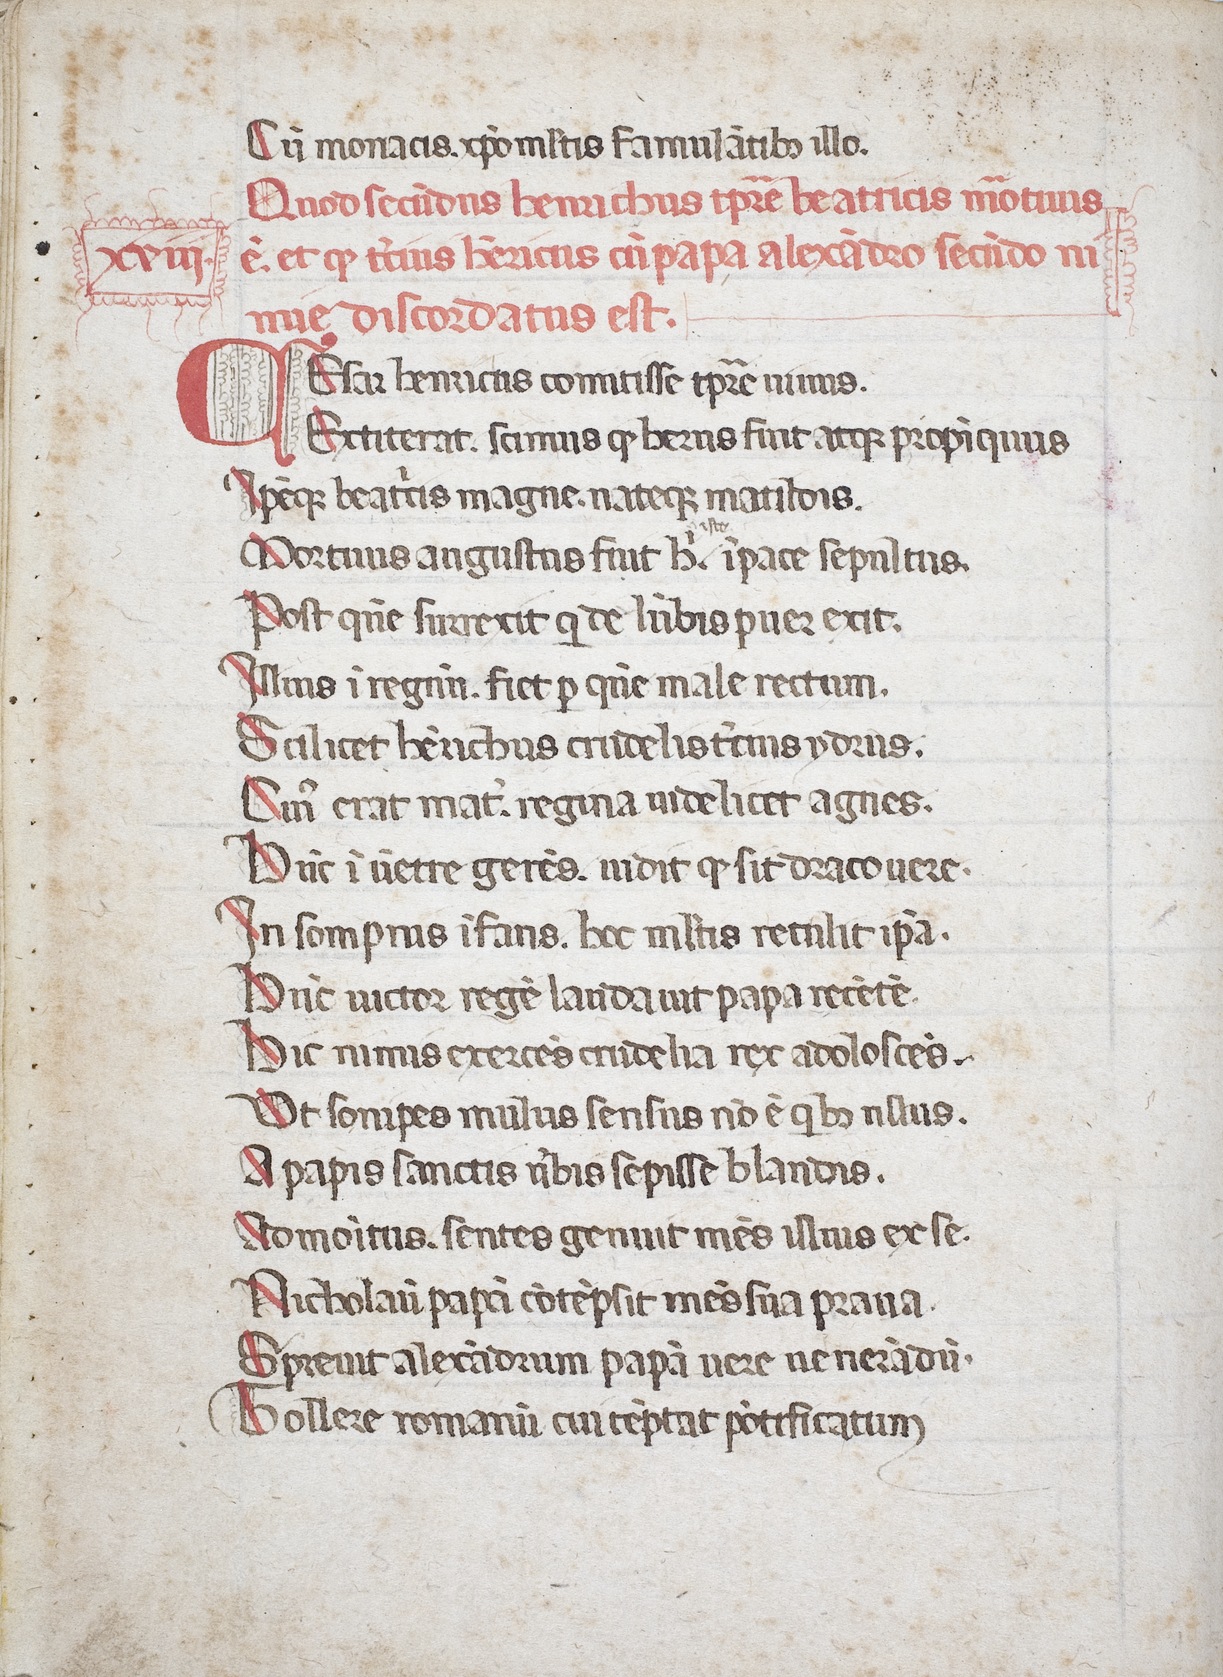 Cũ monacis. xp̃o ml̃tis famulãtibꝫ illo.
Quod secũdus henrichus tp̃re beatricis m̃otuus
xxiij.
ẽ. et ꝙ t̃cius hẽricus cũ papa alexãdro secũdo ni
mie discordatus est.
CEsar henricus comitisse tp̃re uiuus.
Extiterat. scimus ꝙ herus fuit atqꝫ propĩquus
Ip̃eqꝫ beat̃cis magne. nateqꝫ matildis.
iste
Mortuus augustus fuit h̃. ĩ pace sepultus.
Post quẽ surrexit q̃ de lũbis puer exit.
Illius ĩ regnũ. fiet ꝑ quẽ male rectum.
Scilicet hẽrichus crudelis t̃cius ydrus.
Cui᷒ erat mat̃. regina uidelicet agnes.
Hũc ĩ uẽtre gerẽs. uidit ꝙ sit draco uere.
In sompnis ĩfans. hec ml̃tis retulit ip̃a.
Hũc uictor regẽ laudauit papa recẽtẽ.
Hic nimis exercẽs crudelia rex adoloscẽs.
Vt sonipes mulus sensus nõ ẽ qibꝫ ullus.
A papis sanctis ũbis sepisse blandis.
Admoĩtus. sentes genuit mẽs illius ex se.
Nicholaũ papã cõtẽpsit mẽs sua praua.
Spreuit alexãdrum papã uere uenerãdũ.
Tollere romanũ cui tẽptat põtificatum